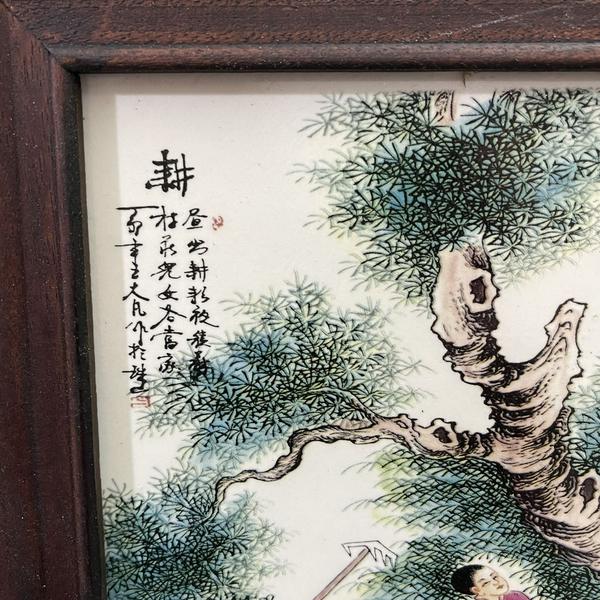 耕
昼出耕耘夜绩麻
村庄兒女各當家
丁亥年王大凡作於珠山